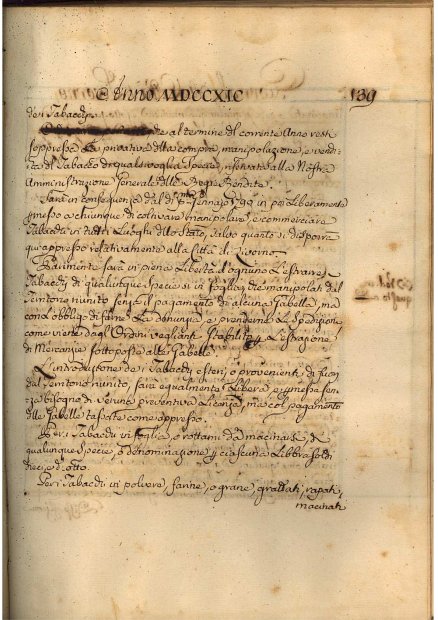 Anno MDCCXIC 139
dei Tabacchi
de al termine del corrente Anno resti
soppressa la privativa della compra, manipolazione, e vendi=
ta del Tabacco di qualsivoglia Specie, riservata alla Nostra
Amministrazione Generale delle Regie Rendite.
Sarà in conseguenza dal dì Gennajo 1790 in poi liberamente
permesso a chiunque di coltivare, manipolare, e commerciare
Tabacchi in tutti i Luoghi dello Stato, salvo quanto si disporrà
qui appresso relativamente alla Città di Livorno.
Parimente sarà in piena Libertà d'ognuno l'estrarre
Tabacchi di qualunque specie sì in foglia, che manipolati dal
Territorio riunito senza il pagamento di alcuna Gabella, ma
con obbligo di farne la denunzia, e prenderne la Spedizione,
come viene dagli Ordini veglianti stabilito per l'estrazione
di Mercanzie sottoposte alle Gabelle.
L'introduzione dei Tabacchi esteri, o provenienti di fuori
del Territorio riunito, sarà egualmente libera e permessa sen=
za bisogno di veruna preventiva Licenza, ma col pagamento
delle Gabelle tassate come appresso.
Per i Tabacchi in foglia, o rottami da macinarsi, di
qualunque specie, o denominazione per ciascuna Libbra soldi
dieci, e d. otto.
Per i Tabacchi in polvere, farine, o grane, grattati, rapati,
macinati